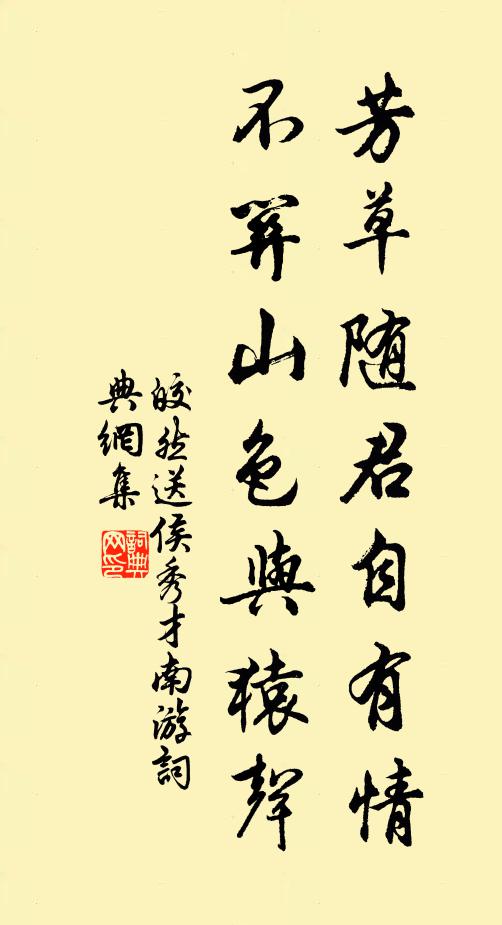 芳草随君自有情
不關山色與猿聲
皎然送侯秀才南游詞
典網集
詞典网印